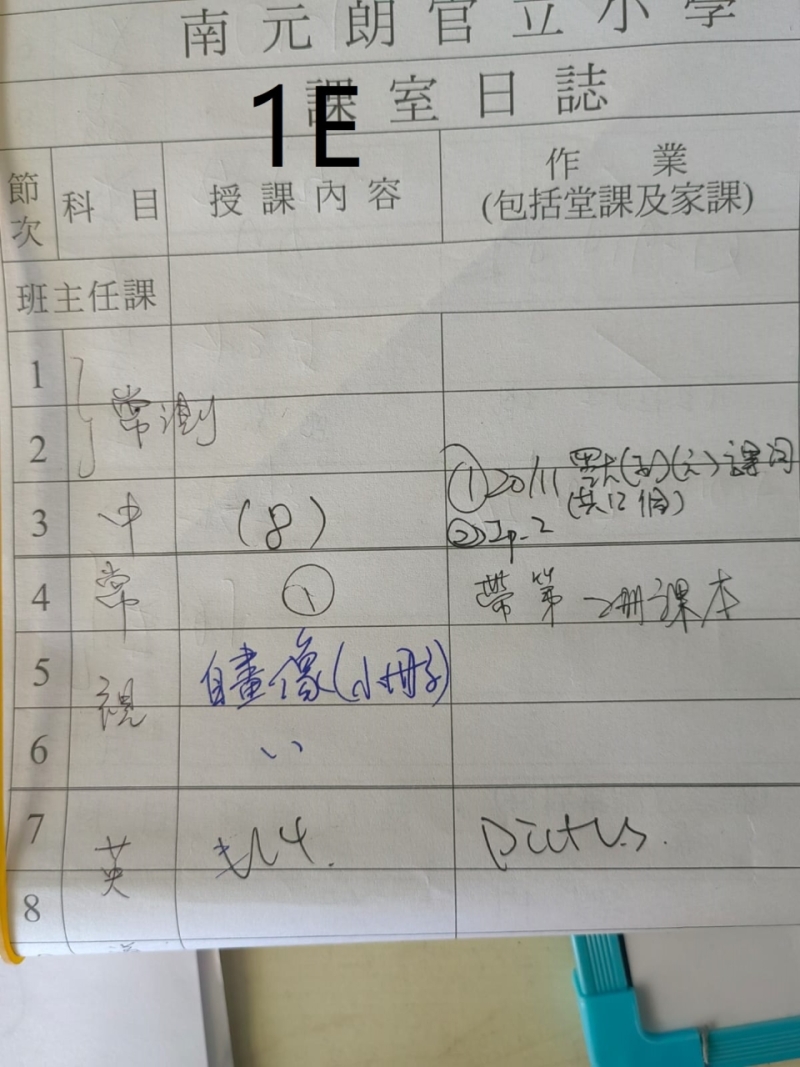 南元朗官立小學
課室日誌
1E
節次 科目 授課內容 作業
(包括堂課及家課)
班主任課
1
常測
2
① 20/11 默(
詞
3 中 (8) (共12個)
②
4 常 帶第二冊課本
5 自畫像(小冊子)
視
6 〃
7 U4.
英
8